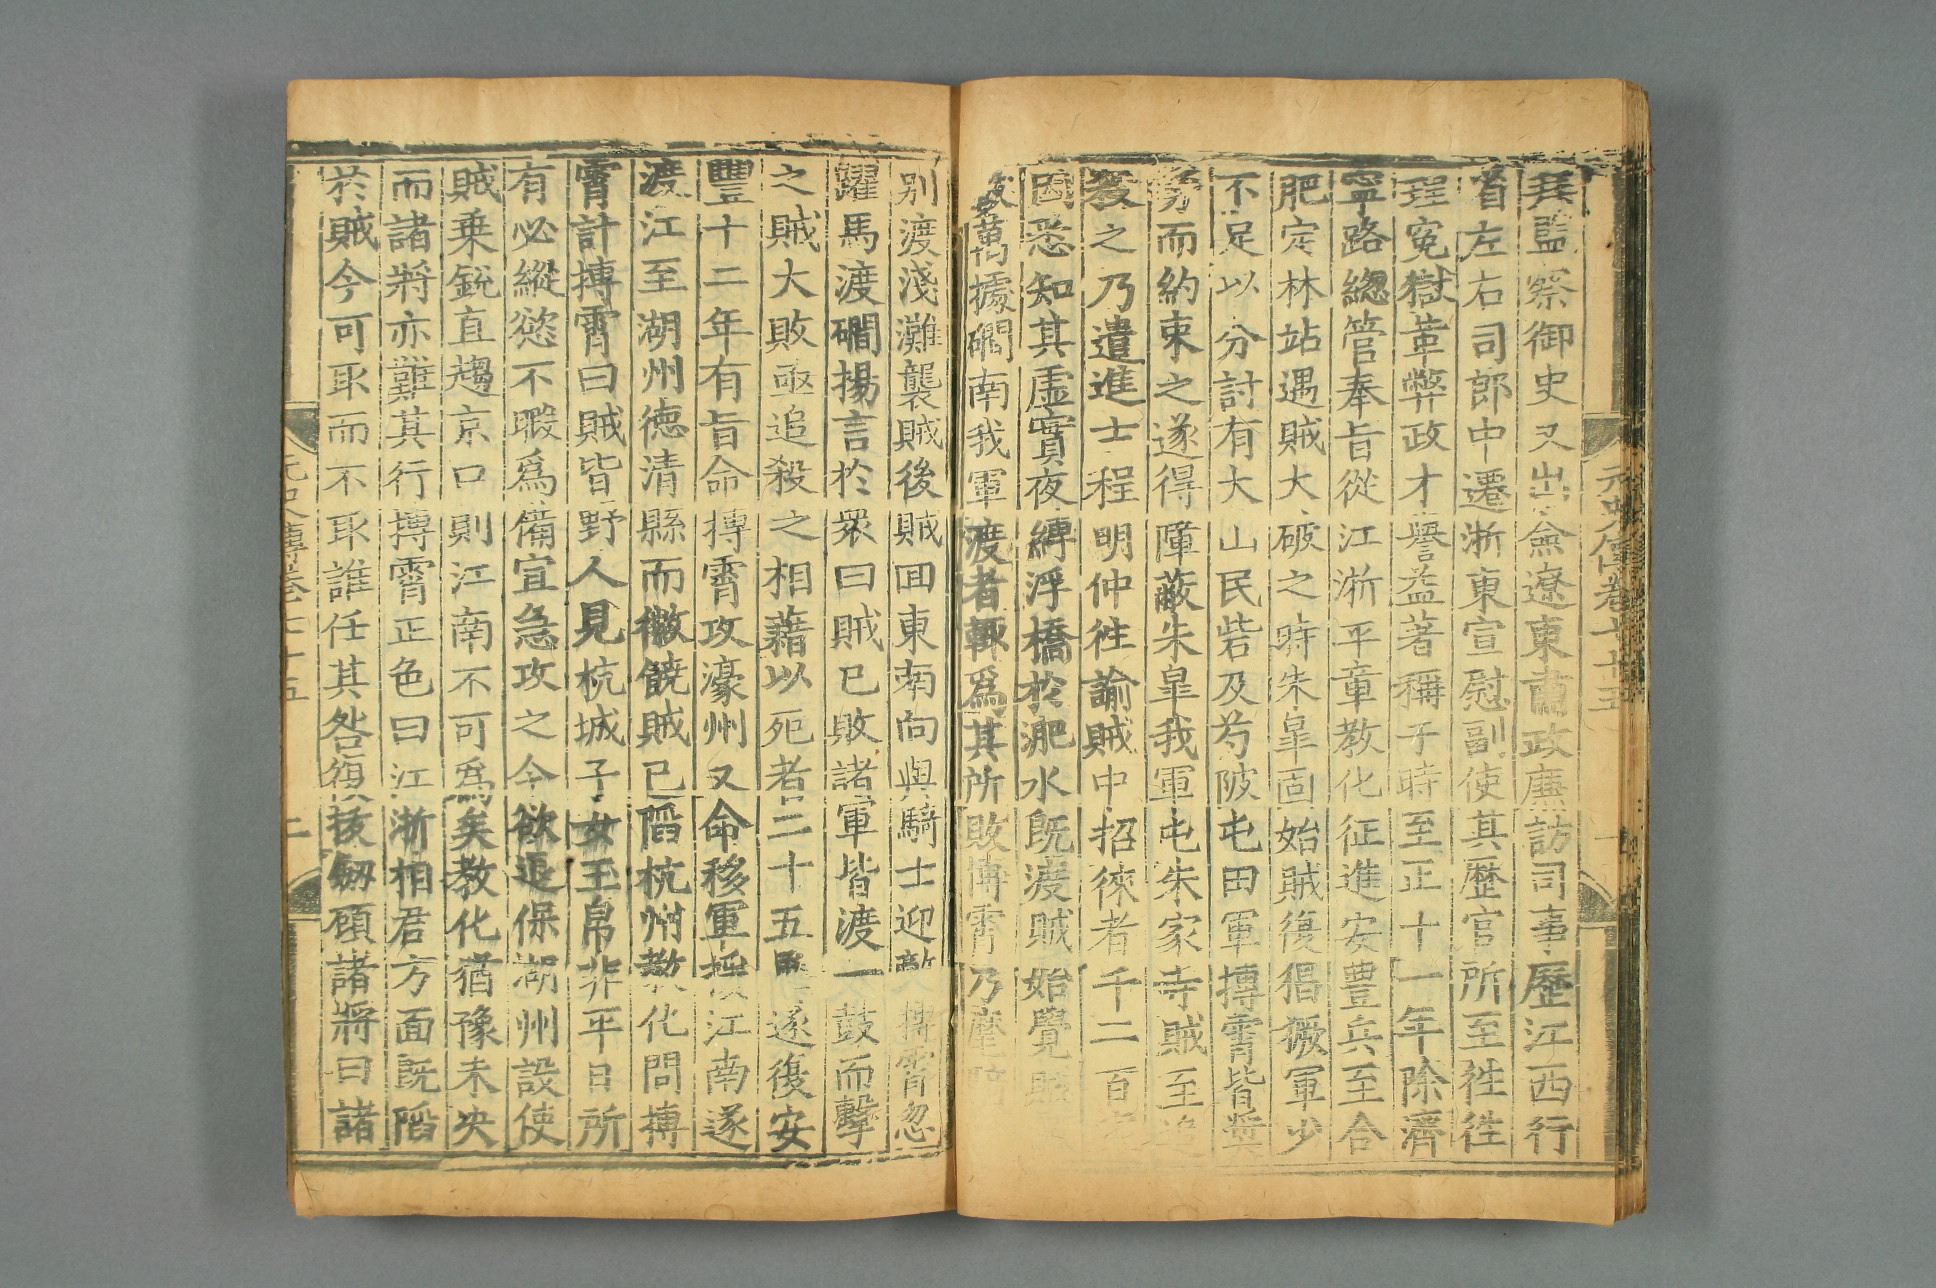 元史傳卷七十五
拜監察御史又出僉遼東肅政廉訪司事歷江西行
省左右司郎中遷浙東宣慰副使其歷官所至徃徃
理冤獄革弊政才譽益著稱于時至正十一年除濟
寧路緫管奉旨從江浙平章教化征進安豊兵至合
肥定林站遇賊大破之時朱皐固始賊復猖獗軍少
不足以分討有大山民砦及芍陂屯田軍摶霄皆奨
勞而約束之遂得障蔽朱皐我軍屯朱家寺賊至追
殺之乃遣進士程明仲徃諭賊中招徠者千二百
因悉知其虚實夜縛浮橋於淝水既渡賊始覺賊
數萬據磵南我軍渡者輙爲其所敗摶霄乃麾騎
别渡淺灘襲賊後賊囬東南向與騎士迎敵摶霄忽
躍馬渡磵揚言於衆曰賊已敗諸軍皆渡一鼓而擊
之賊大敗亟追殺之相藉以死者二十五里遂復安
豐十二年有旨命摶霄攻濠州又命移軍援江南遂
渡江至湖州徳清縣而徽饒賊已䧟杭州教化問摶
霄計摶霄曰賊皆野人見杭城子女玉帛非平日所
有必縱慾不暇爲備宜急攻之今欲退保湖州設使
賊乗鋭直趨京口則江南不可爲矣教化猶豫未决
而諸將亦難其行摶霄正色曰江浙相君方面既䧟
於賊今可取而不取誰任其咎復拔劔顧諸將曰諸
元史傳卷七十五
二